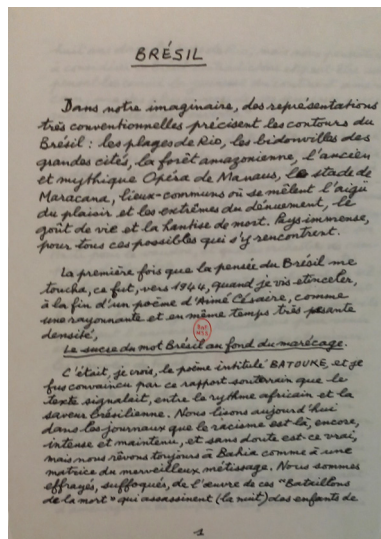 BRÉSIL
Dans notre imaginaire, des représentations
très conventionnelles précisent les contours du
Brésil : les plages de Rio, les bidonvilles des
grandes cités, la forêt amazonienne, l'ancien
et mythique Opéra de Manaus, le stade de
Maracana, lieux-communs où se mêlent l'aigü
du plaisir et les extrêmes du dénuement, le
goût de vie et la hantise de mort. Pays immense,
pour tous ces possibles qui s'y rencontrent.
La première fois que la pensée du Brésil me
toucha, ce fut, vers 1944, quand je vis étinceler,
à la fin d'un poème d'Aimé Césaire, comme
une rayonnante et en même temps très pesante
densité,
Le sucre du mot Brésil au fond du marécage.
C'était, je crois, le poème intitulé BATOUKE, et je
fus convaincu par ce rapport souterrain que le
texte signalait, entre le rythme africain et la
saveur brésilienne. Nous lisons aujourd'hui
dans les journaux que le racisme est là, encore,
intense et maintenu, et sans doute est-ce vrai,
mais nous rêvons toujours à Bahia comme à une
matrice du merveilleux métissage. Nous sommes
effrayés, suffoqués, de l'œuvre de ces "Bataillons
de la mort" qui assassinent (la nuit) des enfants de
1